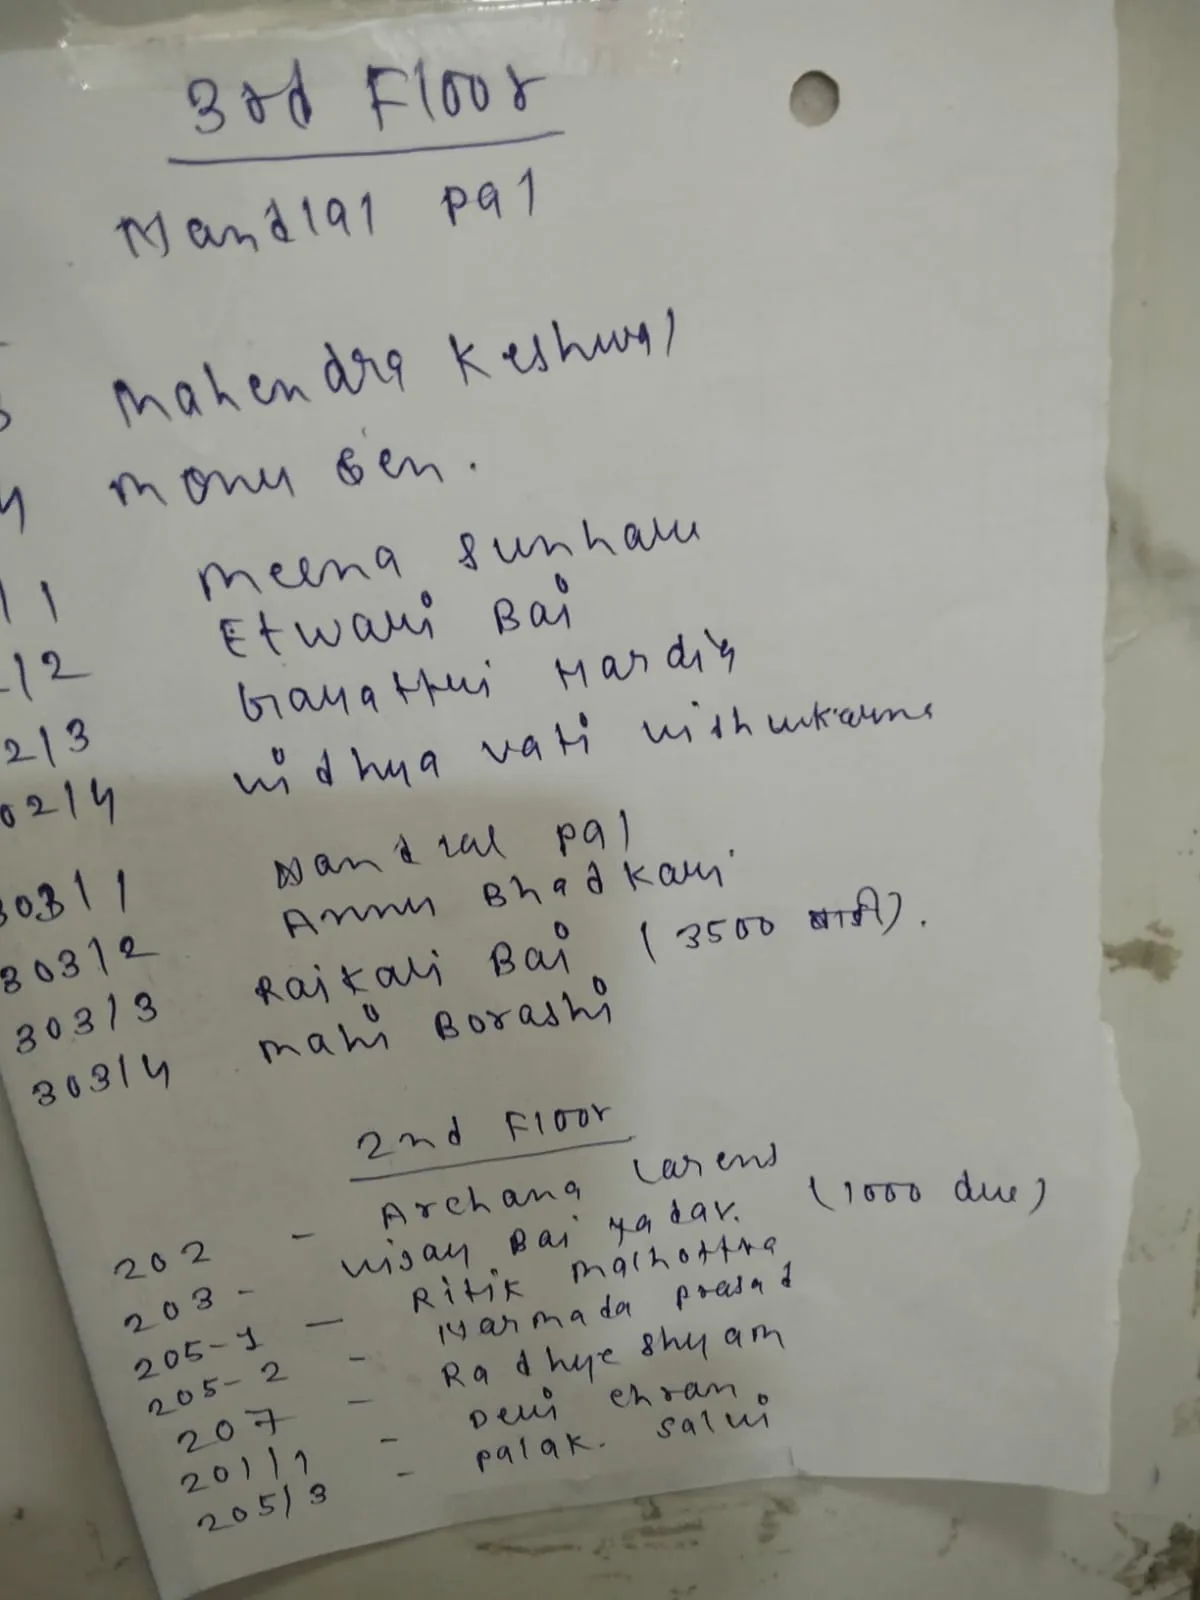 3rd Floor
Nandlal Pal
Mahendra Keshwal
4 Monu Sen.
11 Meena Sunhare
2/2 Etwari Bai
2/3 Gayattri Hardiy
02/4 Vidhya Vati Vishwkarma
303/1 Nandlal Pal
303/2 Annu Bhadkari
303/3 Rajkali Bai (3500 बाकी).
303/4 Mahi Borashi
2nd Floor
202 - Archana
203 - Vijay Bai Yadav. (1000 due)
205-1 - Ritik Malhottra
205-2 - Narmada Prasad
207 - Radhye Shyam
201/1 - Devi Chran
205/3 - Palak. Salvi